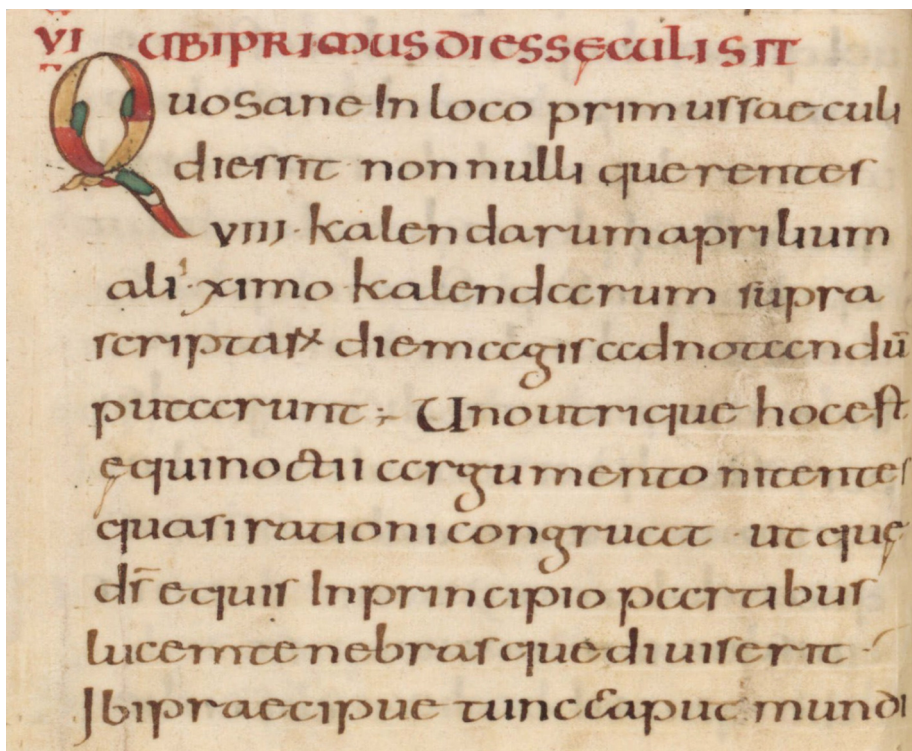 VI UBI PRIMUS DIES SĘCULI SIT
Quo sane In loco primus saeculi
dies sit non nulli querentes
VIII· kalendarum aprilium
alii· XImo kalendarum supra
scriptarum diem magis adnotandū
putarunt;· Uno utrique hoc est
ęquinoctii argumento nitentes
quasi rationi congruat ut quę
ds̄ equis In principio partibus
lucem tenebrasque diuiserit
Ibi praecipue tunc & caput mundi